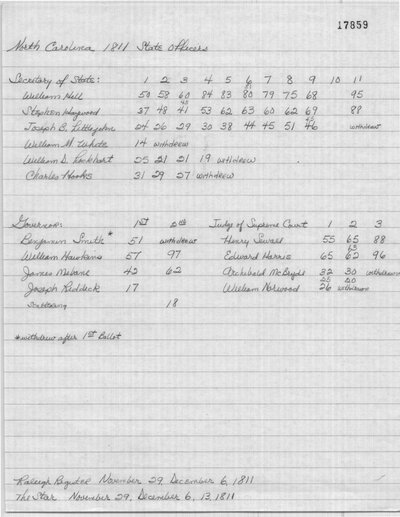 17859
North Carolina 1811 State Officers
Secretary of State: 1 2 3 4 5 6 7 8 9 10 11
William Hill 50 58 60 84 83 80 79 75 68 95
81
Stephen Haywood 37 48 41 53 62 63 60 62 69 88
43
Joseph B. Littlejohn 24 26 29 30 38 44 45 51 46 withdrew
William W. White 14 withdrew
William D. Lockhart 25 21 21 19 withdrew
Charles Hooks 31 29 27 withdrew
Governor: 1st 2nd
Benjamin Smith* 51 withdrew
William Hawkins 57 97
James Mebane 42 62
Joseph Riddick 17
Scattering 18
Judge of Supreme Court 1 2 3
Henry Seawell 55 65 88
63
Edward Harris 65 62 96
Archibald McBryde 32 30 withdrawn
25 20
William Norwood 26 withdrawn
*withdrew after 1st Ballot
Raleigh Register November 29, December 6, 1811
The Star November 29, December 6, 13, 1811